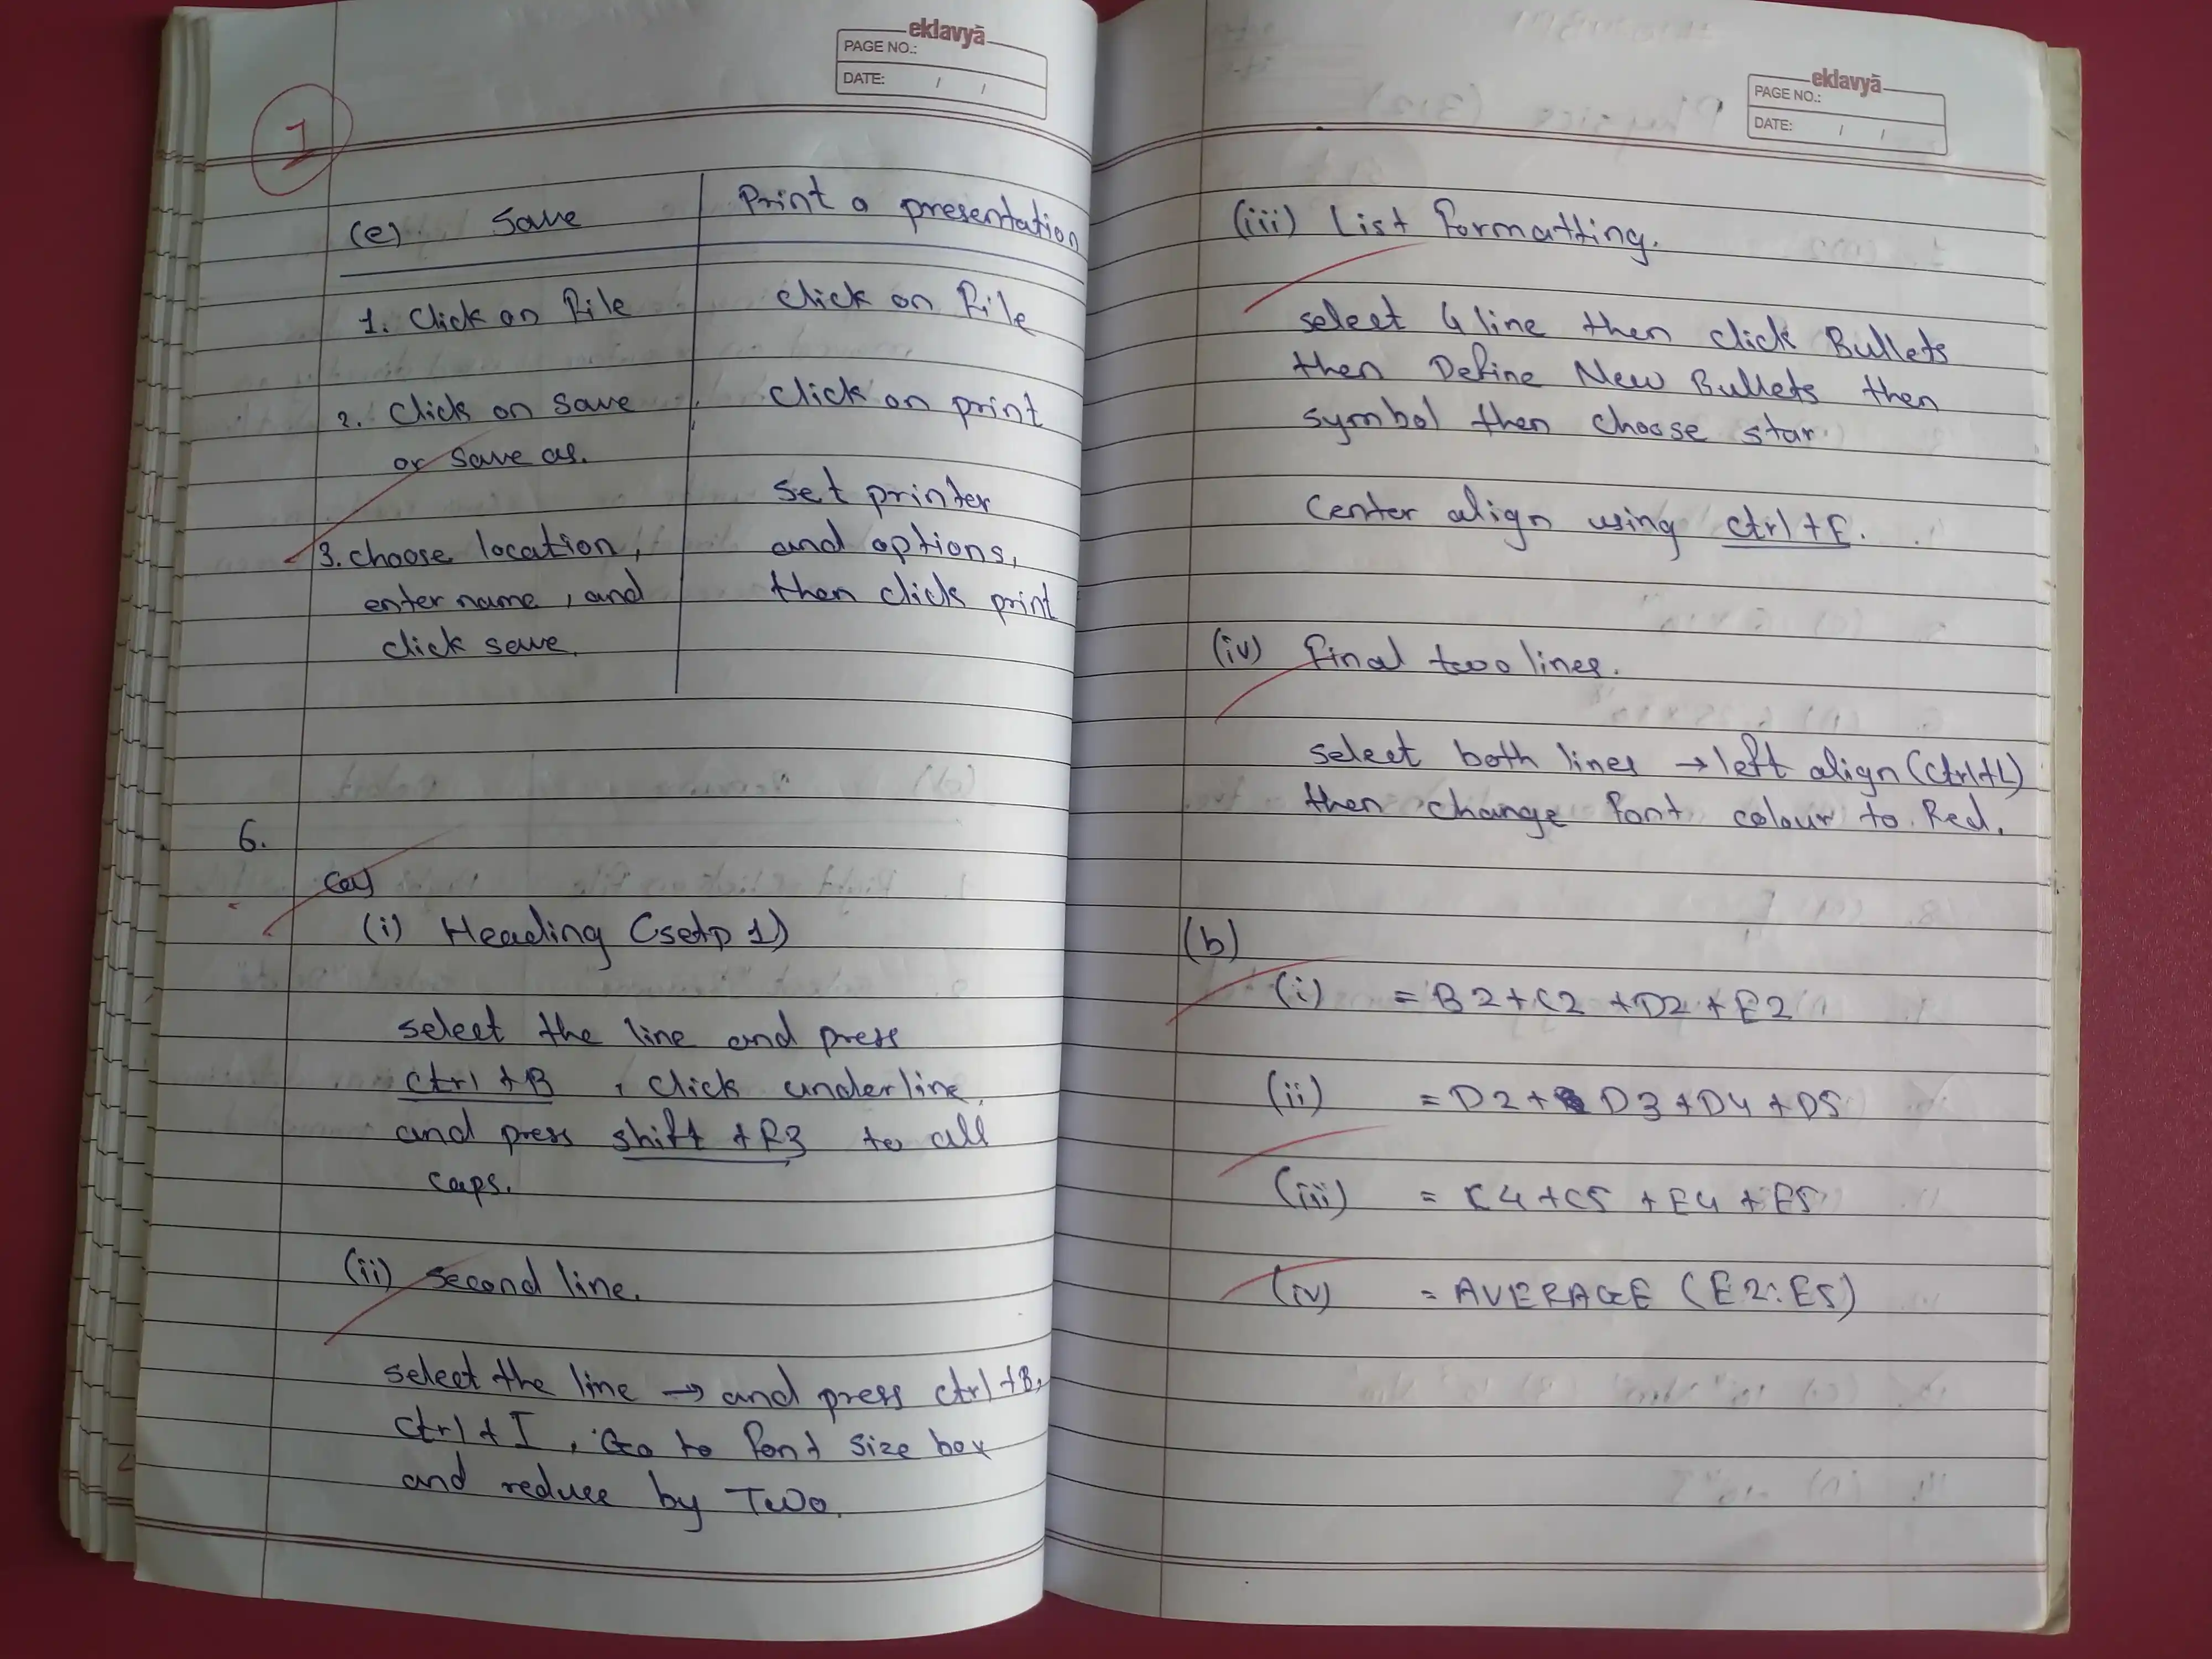 eklavyā
PAGE NO.:
DATE: / /
1
(e) Save | Print a presentation
1. Click on File | click on File
2. Click on save | click on print
or save as.
set printer
3. choose location, | and options,
enter name, and | then click print
click save.
6.
(a)
(i) Heading (setp 1)
select the line and press
ctrl +B , click underline,
and press shift +F3 to all
caps.
(ii) second line.
select the line → and press ctrl+B,
ctrl + I , Go to font size box
and reduce by Two.
eklavyā
PAGE NO.:
DATE: / /
(iii) List Formatting.
select 4 line then click Bullets
then Define New Bullets then
symbol then choose star.
Center align using ctrl+E.
(iv) Final two lines.
select both lines → left align (ctrl+L)
then change font colour to Red.
(b)
(i) = B2+C2 +D2 +E2
(ii) = D2+ D3+D4+D5
(iii) = C4+C5 +E4 +E5
(iv) = AVERAGE (E2:E5)